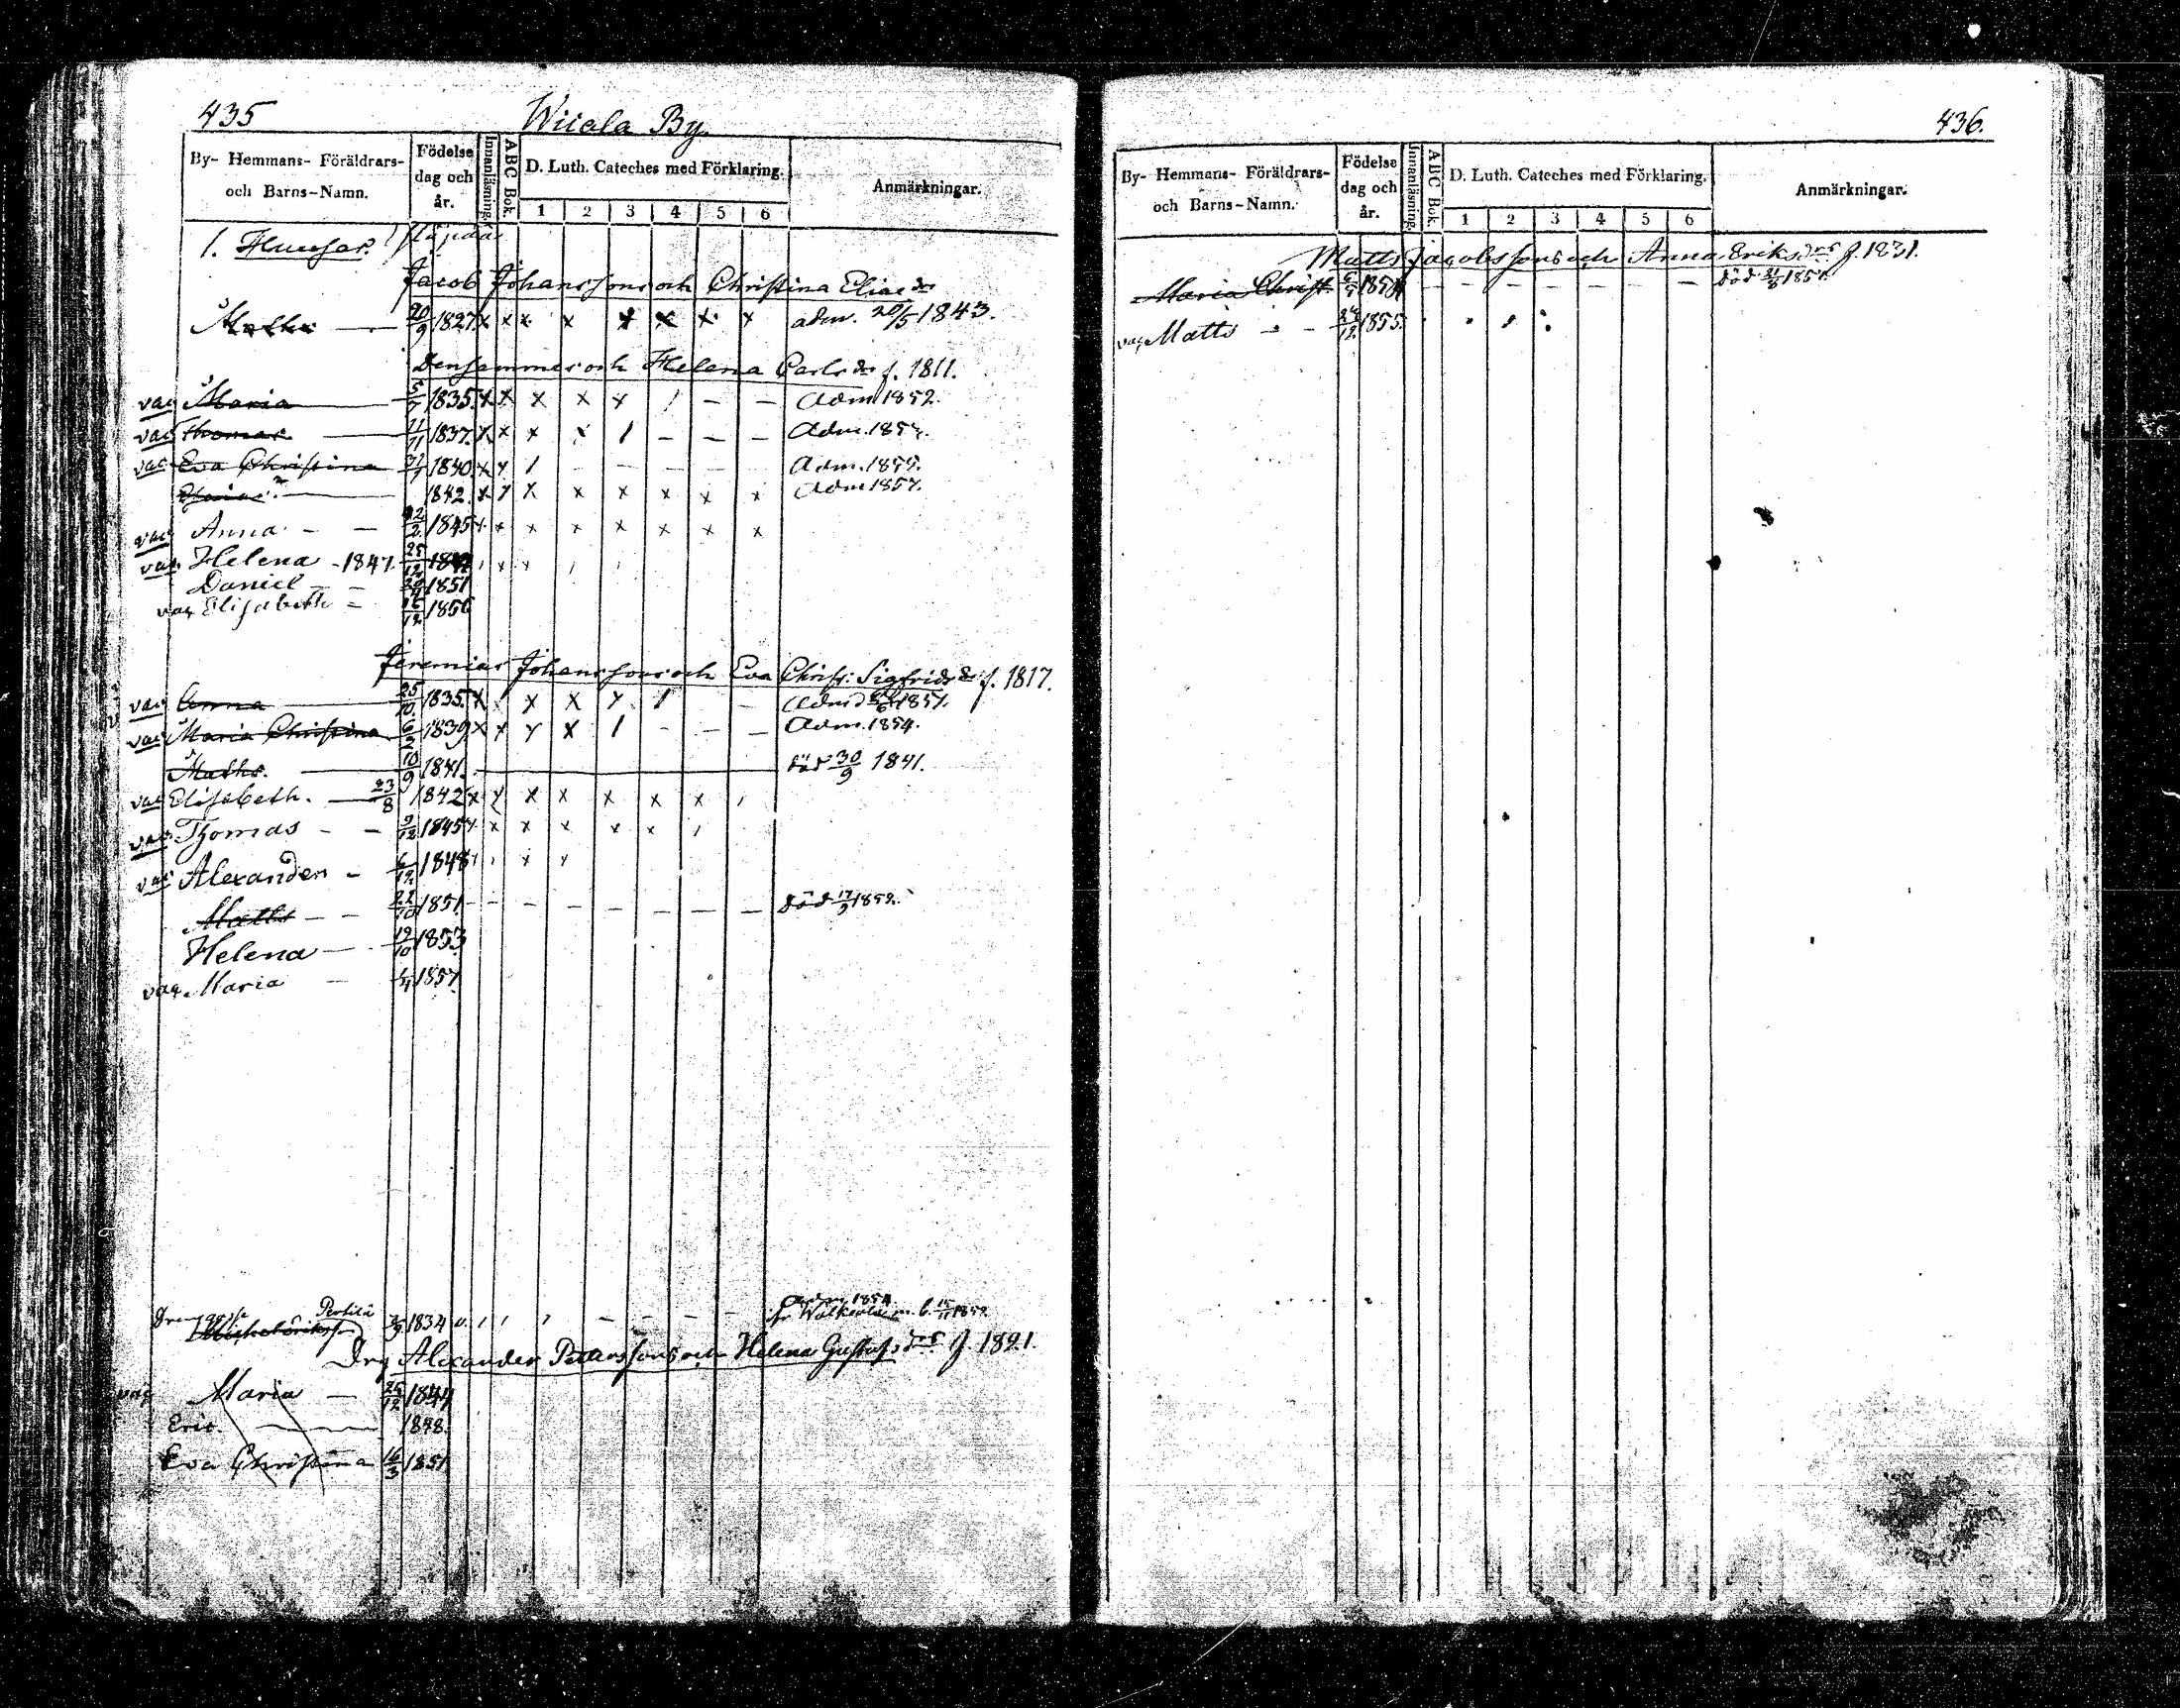 435
Wiiala By.
By- Hemmans- Föräldrars- och Barns-Namn.
Födelse dag och år.
Innanläsning.
ABC Bok.
D. Luth. Cateches med Förklaring.
1 2 3 4 5 6
Anmärkningar.
1.
Jacob Johanssons och Christina Eliaedr
Maths 20/9 1827 x x x x x x x x adm. 20/5 1843.
Densammes och Helena Carlsdr f. 1811.
vac Maria 1835. x x x x x / – – Adm 1852.
vac Thomas 1837. x x x x 1 – – – Adm.
vac Eva Christina 1840 x x 1 – – – – – Adm.
1842. x x x x x x x x Adm
vac Anna – – 1845 x x x x x x x
vac. Helena - 1847. 25/12
Daniel – – 1851
vac Elisabeth – 16/12 1856
Jeremias Johanssons och Eva Christ: Sigfridsdr f. 1817.
vac Anna 25/10 1835. x x x x 1 –
vac Maria Christina 6/2 1839 x x x x 1 – – – Adm. 1854.
Maths. 10/9 1841. död 30/9 1841.
vac Elisabeth. 23/8 1842 x x x x x x x
vac Thomas – – 9/12 1845 x x x x x
vac Alexander – 6/12 1848 x x
Matts – – 1851 – – – – – – – död
Helena – 19/10 1853
vac. Maria – 1857
Perttilä
1834
Drg Alexander Petterssons och Helena Gustafsdr f. 1821.
vac Maria – 25/12 1844
Eric. 1848.
Eva Christina 16/3 1851
436.
By- Hemmans- Föräldrars- och Barns-Namn.
Födelse dag och år.
Innanläsning.
ABC Bok.
D. Luth. Cateches med Förklaring.
1 2 3 4 5 6
Anmärkningar.
Matts Jacobssons och Anna Eriksdr f. 1831.
Maria Christ. – – – – – – – död
vac Matts – – 1855.